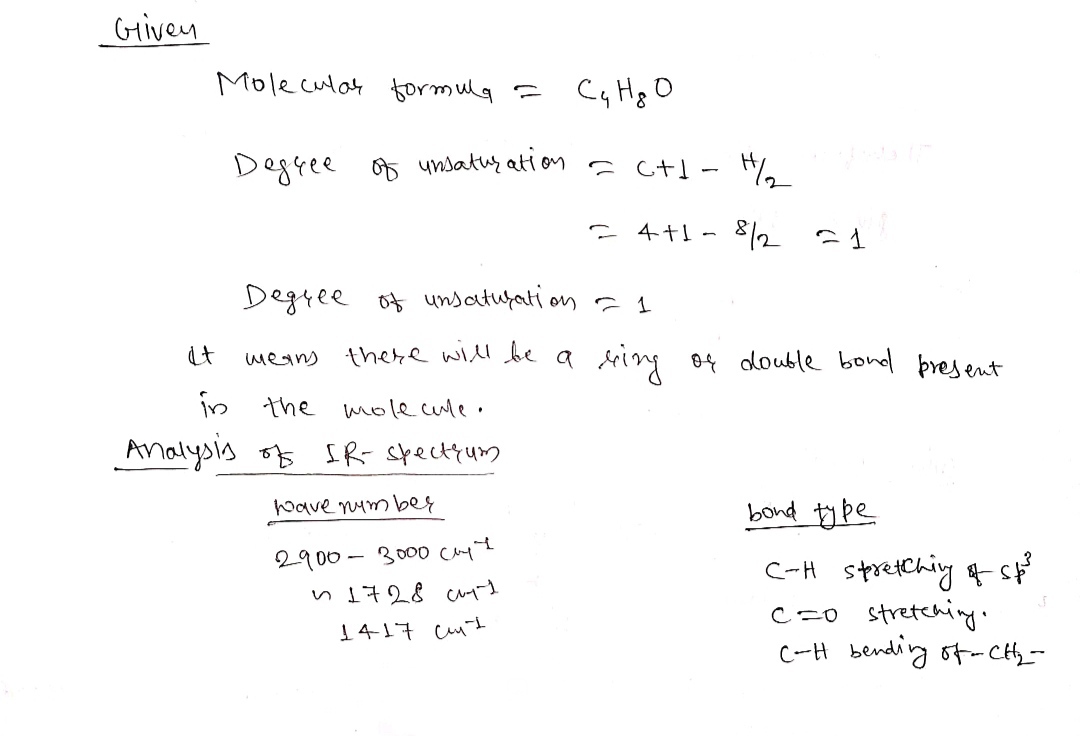 Given
Molecular formula = C₄H₈O
Degree of unsaturation = C+1 - H/2
= 4+1 - 8/2 = 1
Degree of unsaturation = 1
It means there will be a ring or double bond present
in the molecule.
Analysis of IR-spectrum
wave number bond type
2900 - 3000 cm⁻¹ C-H stretching of sp³
~ 1728 cm⁻¹ C=O stretching.
1417 cm⁻¹ C-H bending of -CH₂-